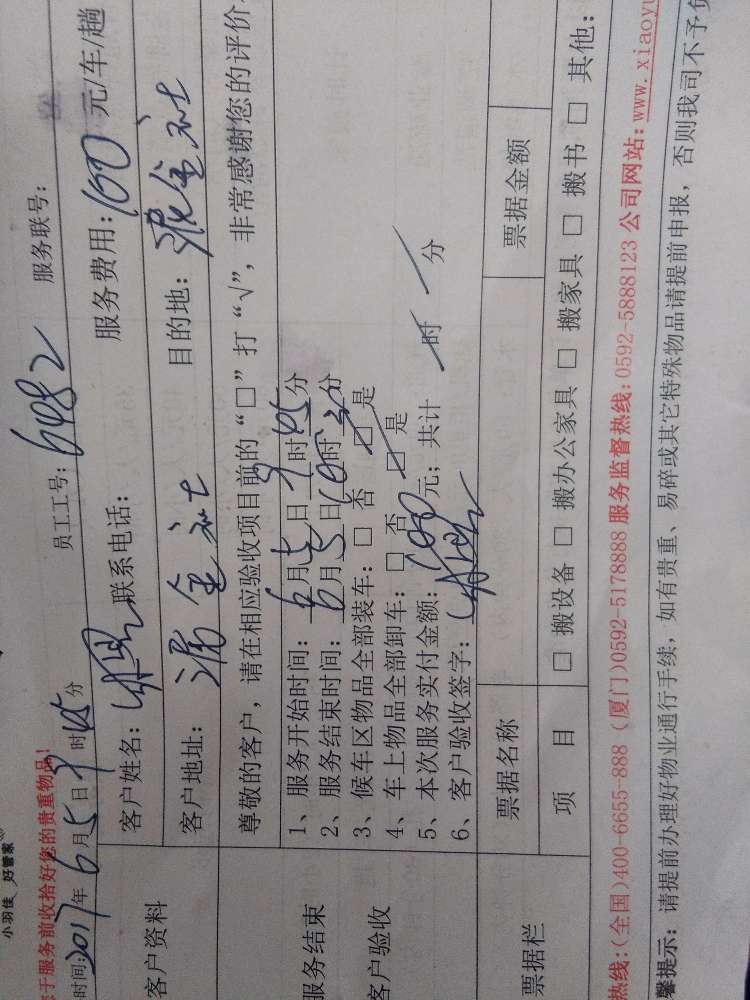 小羽佳 好管家
于服务前收拾好您的贵重物品!
时间:2017年6月5日9时45分 员工工号:6982 服务联号:
客户资料
客户姓名: 联系电话: 服务费用:100元/车/趟
客户地址: 目的地:
服务结束
客户验收
尊敬的客户，请在相应验收项目前的“□”打“√”，非常感谢您的评价
1、服务开始时间:6月5日9时45分
2、服务结束时间:6月5日10时 分
3、候车区物品全部装车:□ 否 □ 是
4、车上物品全部卸车:□ 否 □ 是
5、本次服务实付金额:100元；共计 时 分
6、客户验收签字:
票据栏
票据名称 票据金额
项 目 □ 搬设备 □ 搬办公家具 □ 搬家具 □ 搬书 □ 其他:
热线:(全国)400-6655-888 (厦门)0592-5178888 服务监督热线:0592-5888123 公司网站:www.xiaoyu
馨提示:请提前办理好物业通行手续，如有贵重、易碎或其它特殊物品请提前申报，否则我司不予负